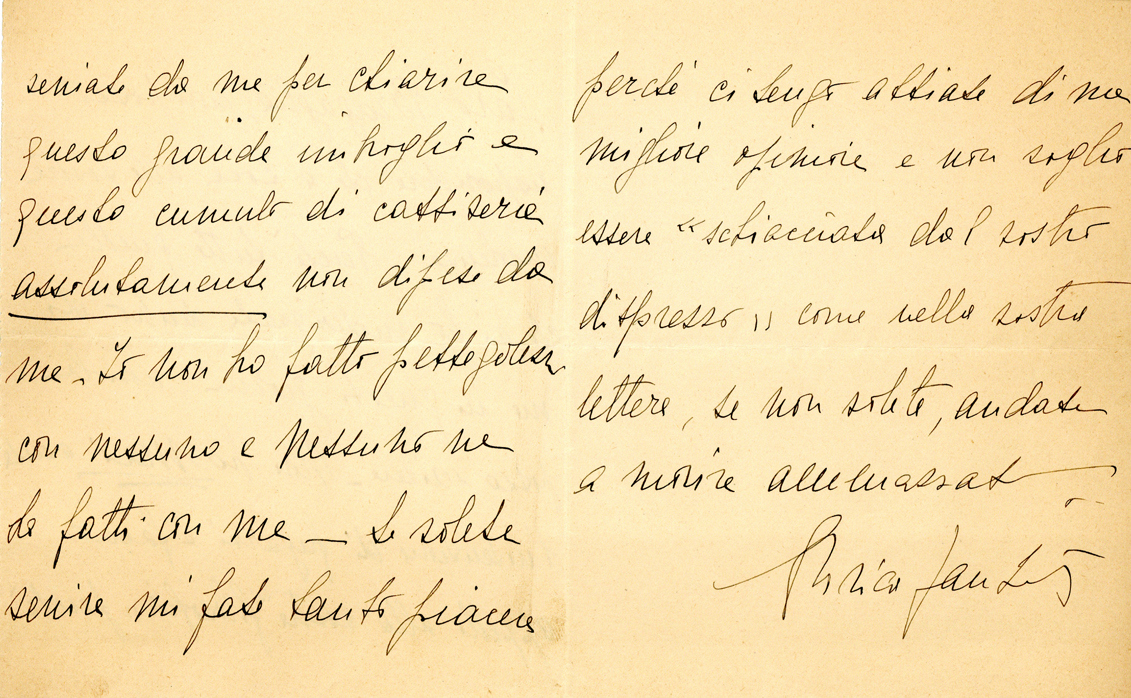 veniate da me per chiarire
questo grande imbroglio e
questo cumulo di cattiverie
assolutamente non difese da
me - Io non ho fatto pettegolezzi
con nessuno e nessuno ne
ha fatti con me — Se volete
venire mi fate tanto piacere
perché ci tengo abbiate di me
migliore opinione e non voglio
essere “schiacciata dal vostro
disprezzo„ come nella vostra
lettera, se non volete, andate
a morire ammazzat